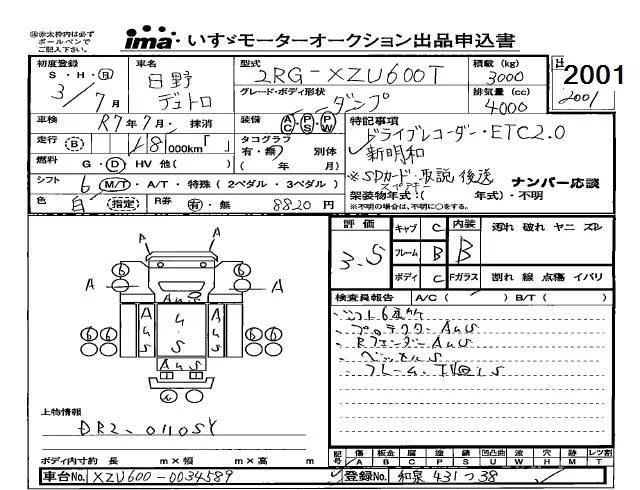 ◎赤太枠内は必ず
ボールペンで
ご記入下さい。
ima・いすゞモーターオークション出品申込書
初度登録 車名 型式 積載 (kg)
S・H・R 日野 2RG-XZU600T 3000
3/7月 デュトロ グレード・ボディ形状 排気量 (cc)
ダンプ 4000
2001
2001
車検 R7年7月・抹消 装備 AC・PS・PW 特記事項
ドライブレコーダー・ETC2.0
走行 18,000km「」 タコグラフ 有・無 別体
新明和
燃料 G・D・HV 他( ) ( 年 月)
※SDカード・取説 後送
スペアキー
ナンバー応談
シフト 6 M/T・A/T・特殊 (2ペダル・3ペダル)
架装物年式:( 年式)・不明
※不明の場合は、不明に○をする。
色 白 指定 R券 有・無 8820円
評価 キャブ C 内装 汚れ 破れ ヤニ スレ
3.5 フレーム B B
ボディ C Fガラス 割れ 線 点傷 イバリ
検査員報告 A/C ( ) B/T ( )
シフト6速所
プロテクターAUS
RフェンダーAUS
ベッセルS
A A
A A
AUS
AUS 4・S AUS
AUS
上物情報
DR2-0110SY
ボディ内寸約 長 m×幅 m×高 m
記号 傷 板金 腐 塗 錆 凹凸曲 波 穴 跡 レツ割
A B C P S U W H M T
車台No. XZU600-0034589
登録No. 和泉 431つ38